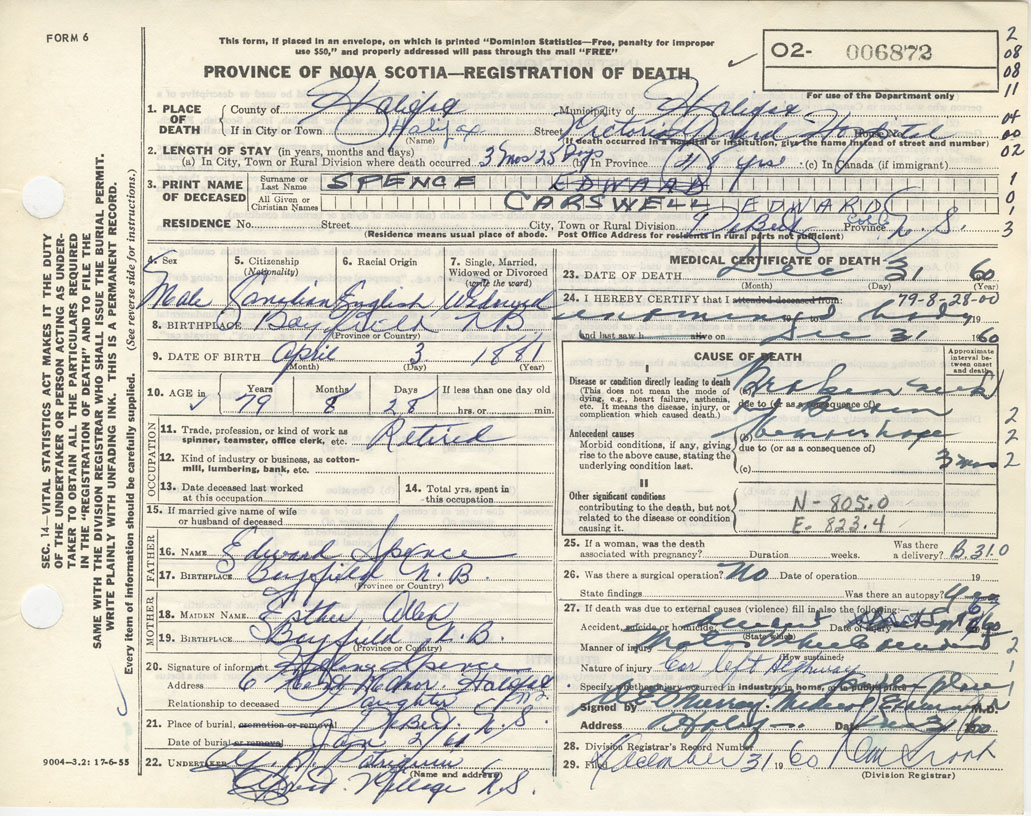 FORM 6
This form, if placed in an envelope, on which is printed "Dominion Statistics—Free, penalty for improper
use $50," and properly addressed will pass through the mail "FREE"
O2- 006872
For use of the Department only
2
08
08
11
04
00
02
1
0
1
3
PROVINCE OF NOVA SCOTIA—REGISTRATION OF DEATH
1. PLACE OF DEATH
County of Halifax Municipality of Halifax
If in City or Town Halifax Street Victoria General Hospital House No.
(Name) (If death occurred in a hospital or institution, give the name instead of street and number)
2. LENGTH OF STAY (in years, months and days)
(a) In City, Town or Rural Division where death occurred 3 mos 28 Days (b) In Province yrs (c) In Canada (if immigrant)
3. PRINT NAME OF DECEASED
Surname or Last Name SPENCE EDWARD
All Given or Christian Names CARSWELL EDWARD
RESIDENCE No. Street City, Town or Rural Division DeBert Col Co Province N.S.
(Residence means usual place of abode. Post Office Address for residents in rural parts not sufficient)
4. Sex Male
5. Citizenship (Nationality) Canadian
6. Racial Origin English
7. Single, Married, Widowed or Divorced (write the word) Widowed
8. BIRTHPLACE Bay Field N B
(Province or Country)
9. DATE OF BIRTH April 3 1881
(Month) (Day) (Year)
10. AGE in Years 79 Months 8 Days 28 If less than one day old hrs. or min.
OCCUPATION
11. Trade, profession, or kind of work as spinner, teamster, office clerk, etc. Retired
12. Kind of industry or business, as cotton-mill, lumbering, bank, etc.
13. Date deceased last worked at this occupation
14. Total yrs. spent in this occupation
15. If married give name of wife or husband of deceased
FATHER
16. NAME Edward Spence
17. BIRTHPLACE Bayfield N.B.
(Province or Country)
MOTHER
18. MAIDEN NAME Esther Allen
19. BIRTHPLACE Bayfield N.B.
(Province or Country)
20. Signature of informant Spence
Address 6 Halifax
Relationship to deceased Daughter
21. Place of burial, cremation or removal DeBert N.S.
Date of burial or removal Jan 2/61
22. UNDERTAKER
(Name and address) N.S.
MEDICAL CERTIFICATE OF DEATH
23. DATE OF DEATH Dec 31 60
(Month) (Day) (Year)
24. I HEREBY CERTIFY that I attended deceased from: 79-8-28-00
examined body 19
and last saw h alive on Dec 31 1960
CAUSE OF DEATH
Approximate interval between onset and death
I
Disease or condition directly leading to death
(This does not mean the mode of dying, e.g., heart failure, asthenia, etc. It means the disease, injury, or complication which caused death.)
(a) Broken neck
due to (or as a consequence of)
Antecedent causes
Morbid conditions, if any, giving rise to the above cause, stating the underlying condition last.
(b) Hemorrhage
due to (or as a consequence of)
3 mos
(c)
2
2
2
II
Other significant conditions
contributing to the death, but not related to the disease or condition causing it.
N-805.0
E. 823.4
25. If a woman, was the death associated with pregnancy? Duration weeks. Was there a delivery? B.310
26. Was there a surgical operation? No Date of operation 19
State findings Was there an autopsy?
27. If death was due to external causes (violence) fill in also the following:—
Accident, suicide or homicide Accident Date of injury Sept 1960
(State which)
Manner of injury 2
(How sustained)
Nature of injury Car left Highway 1
Specify whether injury occurred in industry, in home, or in public place Public place 1
Signed by Murray Medical Examiner M.D.
Address Halifax Date Dec 31 1960
28. Division Registrar's Record Number
29. Filed December 31 1960
(Division Registrar)
SEC. 14—VITAL STATISTICS ACT MAKES IT THE DUTY
OF THE UNDERTAKER OR PERSON ACTING AS UNDER-
TAKER TO OBTAIN ALL THE PARTICULARS REQUIRED
IN THE "REGISTRATION OF DEATH" AND TO FILE THE
SAME WITH THE DIVISION REGISTRAR WHO SHALL ISSUE THE BURIAL PERMIT.
WRITE PLAINLY WITH UNFADING INK. THIS IS A PERMANENT RECORD.
Every item of information should be carefully supplied. (See reverse side for instructions.)
9004—3.2: 17-6-55